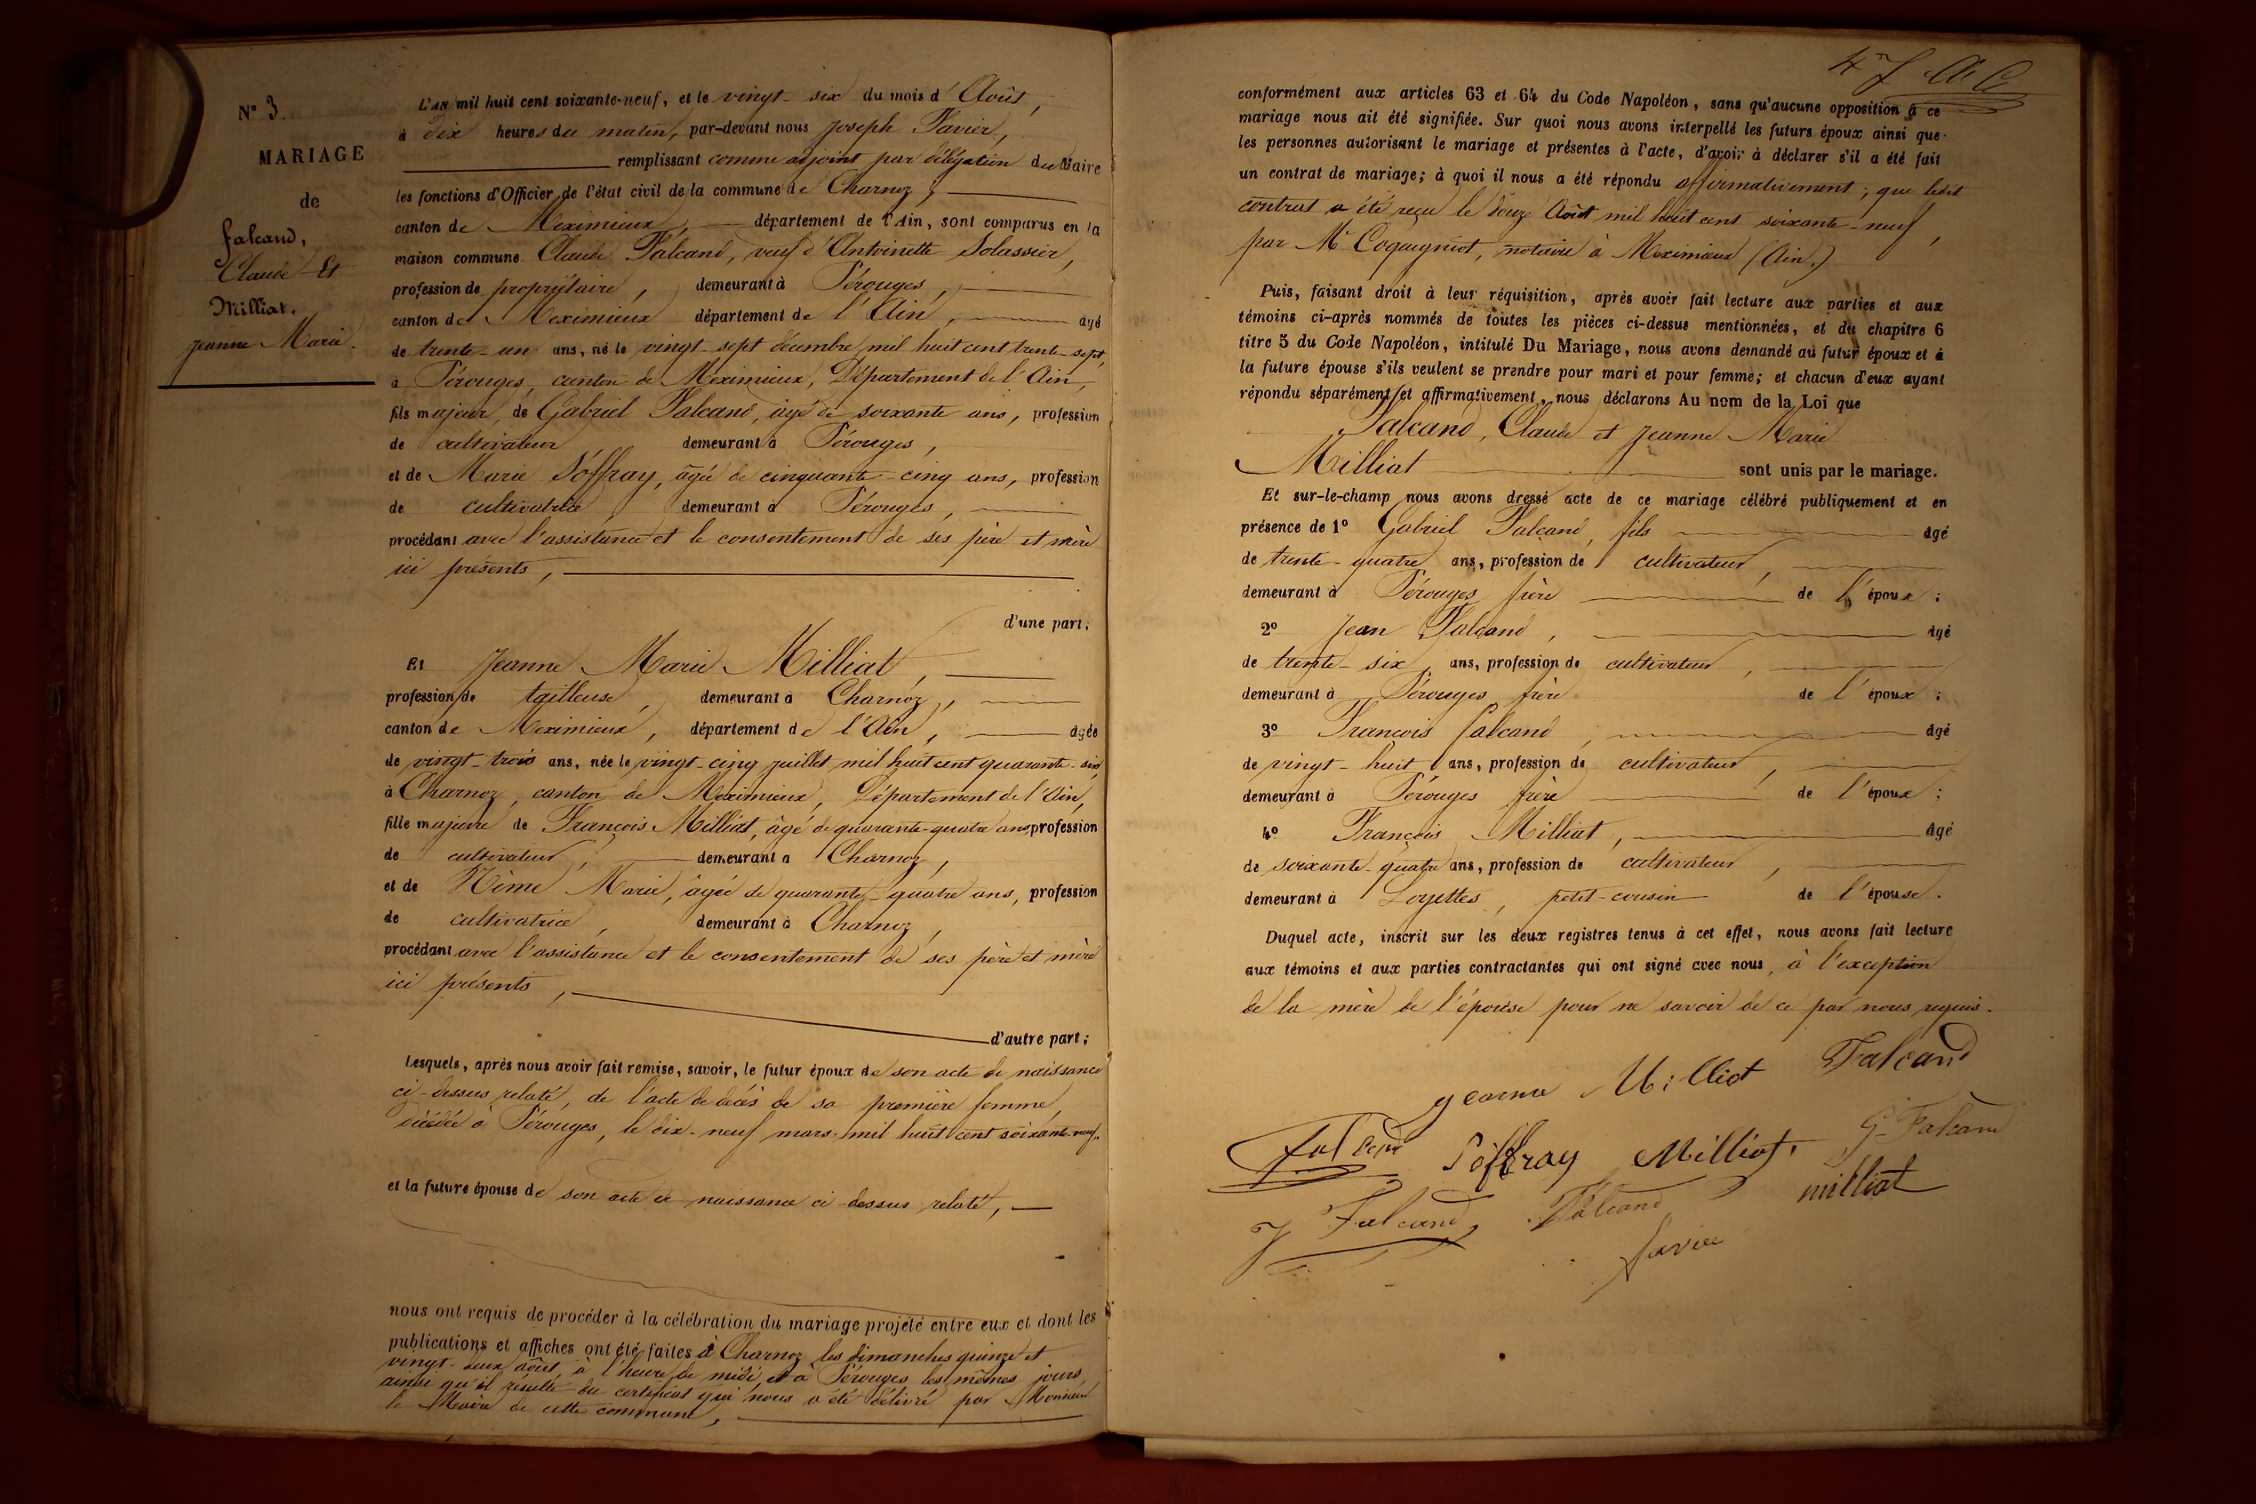 N° 3.
MARIAGE
de
falcand,
Claude Et
Milliat.
Jeanne Marie.
L'an mil huit cent soixante-neuf, et le vingt-six du mois d'Août,
à dix heures du matin, par-devant nous Joseph Favier,
remplissant comme adjoint par délégation du Maire
les fonctions d'Officier de l'état civil de la commune de Charnoz,
canton de Meximieux, département de l'Ain, sont comparus en la
maison commune Claude Falcand, veuf d'Antoinette Solassier,
profession de propriétaire, demeurant à Pérouges,
canton de Meximieux département de l'Ain, agé
de trente-un ans, né le vingt-sept décembre mil huit cent trente-sept,
à Pérouges, canton de Meximieux, Département de l'Ain,
fils majeur, de Gabriel Falcand, âgé de soixante ans, profession
de cultivateur demeurant à Pérouges,
et de Marie Séffray, âgée de cinquante-cinq ans, profession
de cultivatrice, demeurant à Pérouges,
procédant avec l'assistance et le consentement de ses père et mère
ici présents,
d'une part;
Et Jeanne Marie Milliat,
profession de tailleuse, demeurant à Charnoz,
canton de Meximieux, département de l'Ain, agée
de vingt-trois ans, née le vingt-cinq juillet mil huit cent quarante-six,
à Charnoz, canton de Meximieux, Département de l'Ain,
fille majeure de François Milliat, âgé de quarante-quatre ans, profession
de cultivateur, demeurant à Charnoz,
et de Marie, âgée de quarante-quatre ans, profession
de cultivatrice, demeurant à Charnoz,
procédant avec l'assistance et le consentement de ses père et mère
ici présents,
d'autre part;
Lesquels, après nous avoir fait remise, savoir, le futur époux de son acte de naissance
ci-dessus relaté, de l'acte de décès de sa première femme,
décédée à Pérouges, le dix-neuf mars mil huit cent soixante-neuf.
et la future épouse de son acte de naissance ci-dessus relaté,
nous ont requis de procéder à la célébration du mariage projeté entre eux et dont les
publications et affiches ont été faites à Charnoz les dimanches quinze et
vingt-deux août, à l'heure de midi, et à Pérouges les mêmes jours,
ainsi qu'il résulte du certificat qui nous a été délivré par Monsieur
le Maire de cette commune,
47
conformément aux articles 63 et 64 du Code Napoléon, sans qu'aucune opposition à ce
mariage nous ait été signifiée. Sur quoi nous avons interpellé les futurs époux ainsi que
les personnes autorisant le mariage et présentes à l'acte, d'avoir à déclarer s'il a été fait
un contrat de mariage; à quoi il nous a été répondu affirmativement; que ledit
contrat a été reçu le douze Août mil huit cent soixante-neuf,
par Me Coquignot, notaire à Meximieux (Ain.)
Puis, faisant droit à leur réquisition, après avoir fait lecture aux parties et aux
témoins ci-après nommés de toutes les pièces ci-dessus mentionnées, et du chapitre 6
titre 5 du Code Napoléon, intitulé Du Mariage, nous avons demandé au futur époux et à
la future épouse s'ils veulent se prendre pour mari et pour femme; et chacun d'eux ayant
répondu séparément et affirmativement, nous déclarons Au nom de la Loi que
Falcand, Claude et Jeanne Marie
Milliat sont unis par le mariage.
Et sur-le-champ nous avons dressé acte de ce mariage célébré publiquement et en
présence de 1° Gabriel Falcand, fils agé
de trente-quatre ans, profession de cultivateur,
demeurant à Pérouges frère de l'époux;
2° Jean Falcand, agé
de trente-six ans, profession de cultivateur,
demeurant à Pérouges frère de l'époux;
3° François falcand, agé
de vingt-huit ans, profession de cultivateur,
demeurant à Pérouges frère de l'époux;
4° François Milliat, agé
de soixante-quatre ans, profession de cultivateur,
demeurant à Loyettes, petit-cousin de l'épouse.
Duquel acte, inscrit sur les deux registres tenus à cet effet, nous avons fait lecture
aux témoins et aux parties contractantes qui ont signé avec nous, à l'exception
de la mère de l'épouse pour ne savoir de ce par nous requis.
Jeanne Milliat Falcand
Falcand Séffray Milliat. G. Falcand
J Falcand Falcand milliat
favier